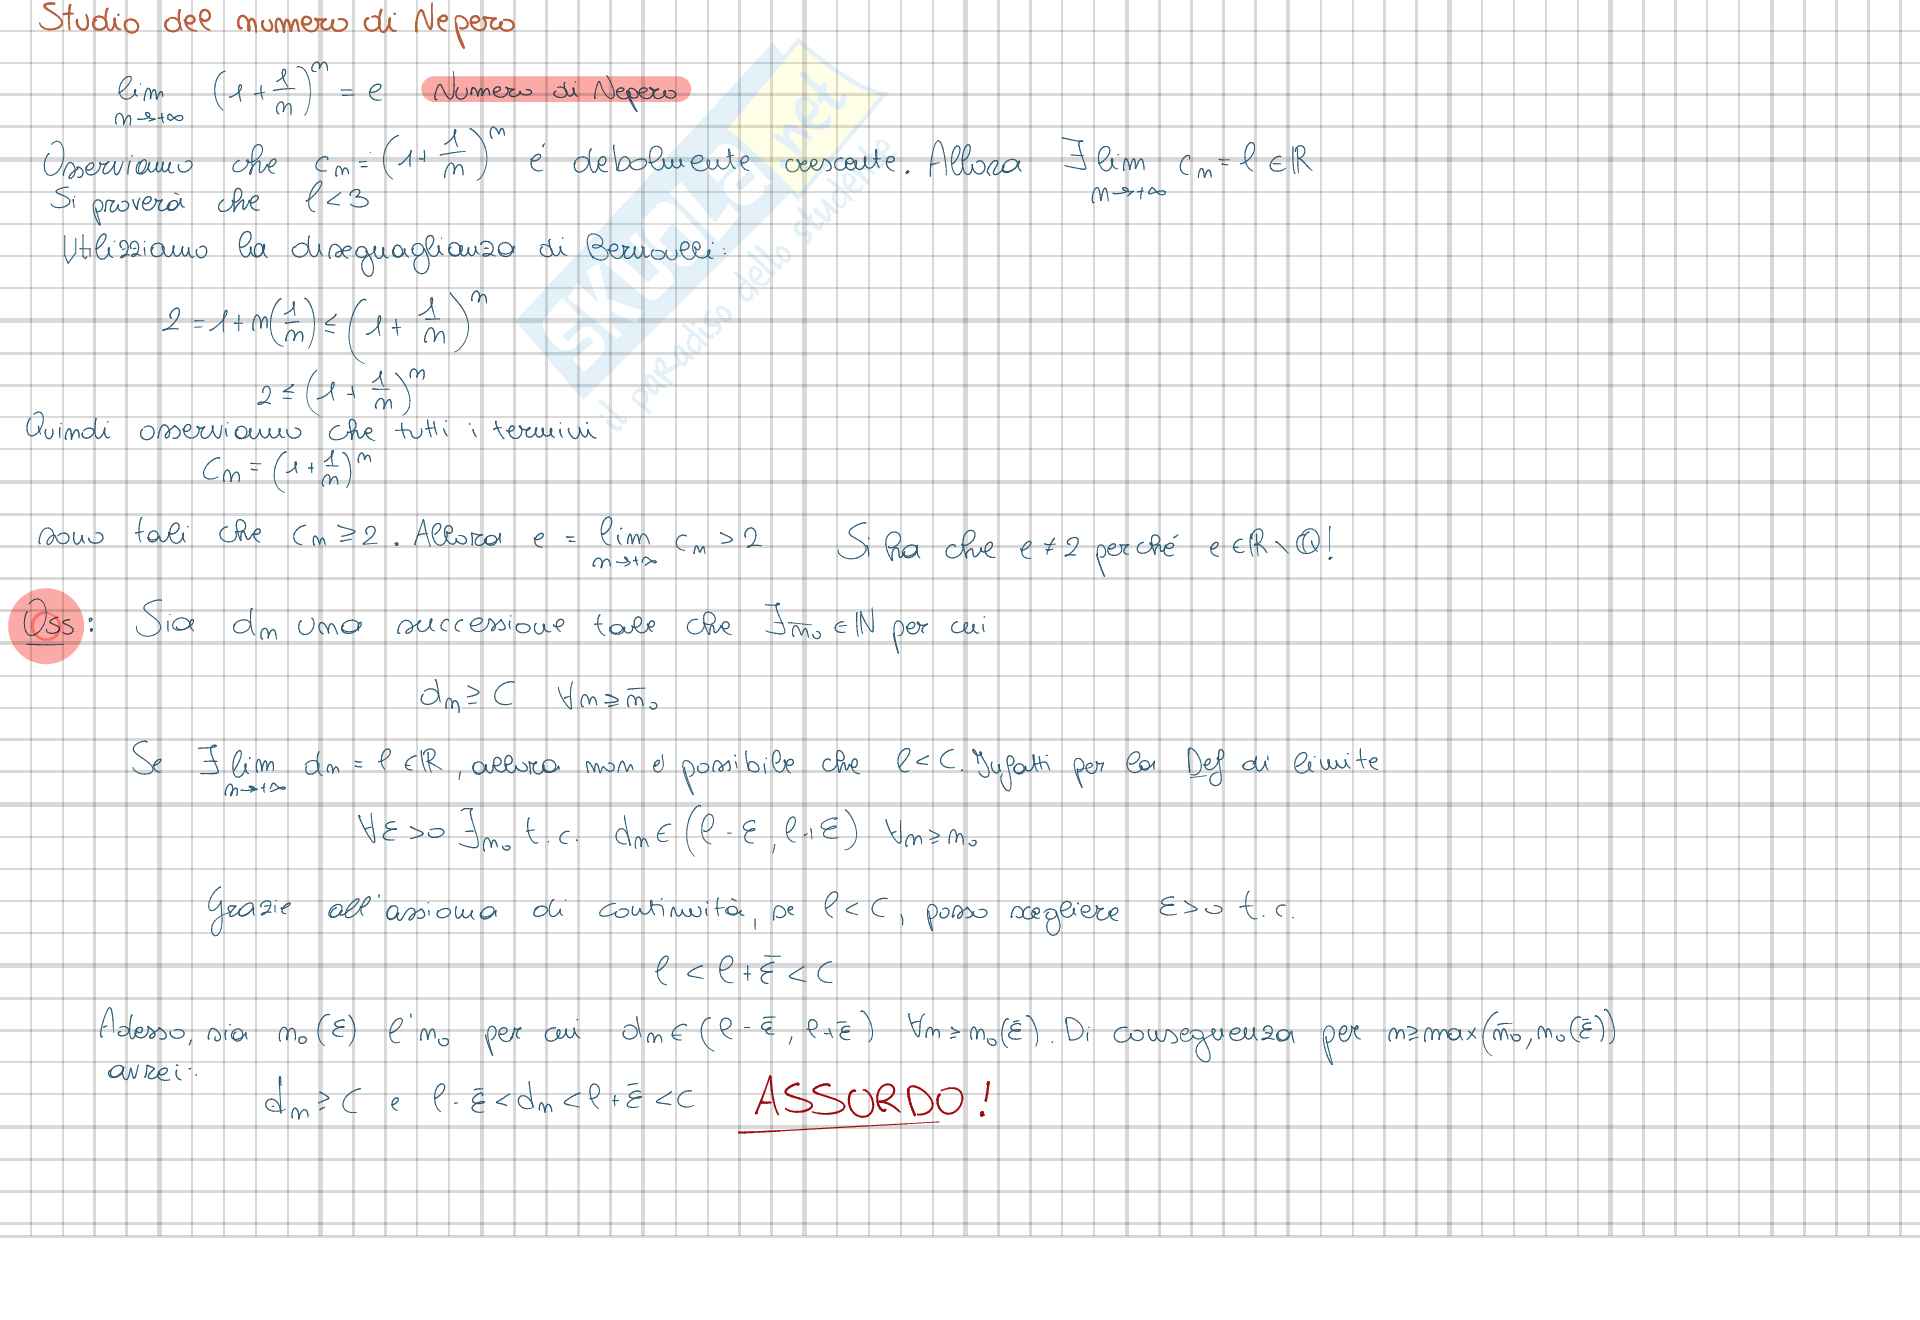 Studio del numero di Nepero
lim n→+∞ (1+1/n)^n = e Numero di Nepero
Osserviamo che c_n = (1+1/n)^n é debolmente crescente. Allora ∃ lim n→+∞ c_n = l ∈ ℝ
Si proverà che l<3
Utilizziamo la diseguaglianza di Bernoulli:
2 = 1+n(1/n) ≤ (1+1/n)^n
2 ≤ (1+1/n)^n
Quindi osserviamo che tutti i termini
C_n = (1+1/n)^n
sono tali che C_n ≥ 2. Allora e = lim n→+∞ c_n > 2 Si ha che e ≠ 2 perché e ∈ ℝ∖ℚ!
Oss: Sia d_n una successione tale che ∃ n̄₀ ∈ ℕ per cui
d_n ≥ C ∀n ≥ n̄₀
Se ∃ lim n→+∞ d_n = l ∈ ℝ, allora non è possibile che l < C. Infatti per la Def di limite
∀ε>0 ∃ n₀ t.c. d_n ∈ (l-ε, l+ε) ∀n ≥ n₀
Grazie all'assioma di continuità, se l < C, posso scegliere ε>0 t.c.
l < l+ε̄ < C
Adesso, sia n₀(ε) l'n₀ per cui d_n ∈ (l-ε̄, l+ε̄) ∀n ≥ n₀(ε̄). Di conseguenza per n ≥ max(n̄₀, n₀(ε̄))
avrei:
d_n ≥ C e l-ε̄ < d_n < l+ε̄ < C ASSURDO!
SKUOLA.net
il paradiso dello studente